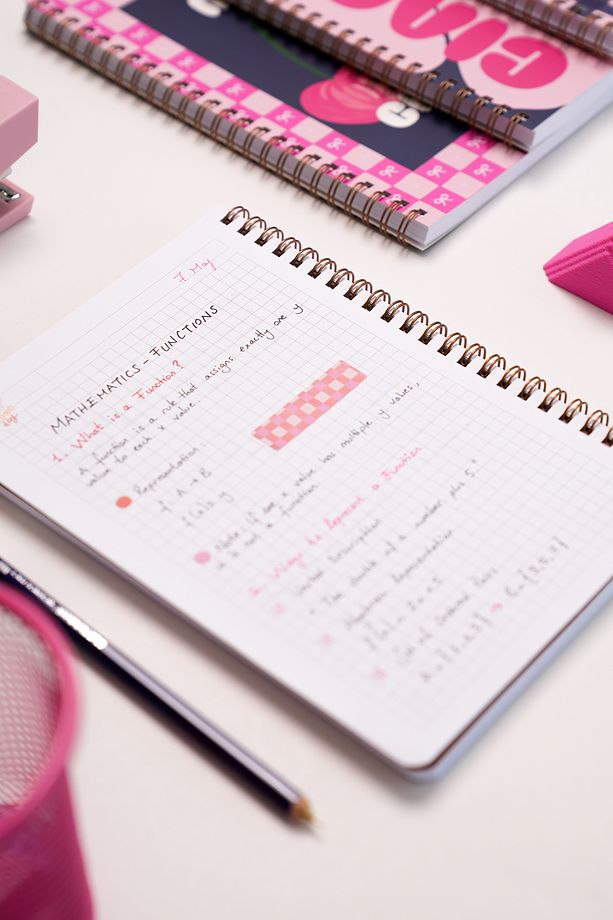 7 May
MATHEMATICS - FUNCTIONS
1. What is a Function?
A function is a rule that assigns exactly one y
value to each x value.
Representation:
f: A → B
f(x) = y
Note: If one x value has multiple y values,
it is not a function.
2. Ways to Represent a Function
Verbal Description
"The double of a number plus 5."
Algebraic Representation
Set of Ordered Pairs